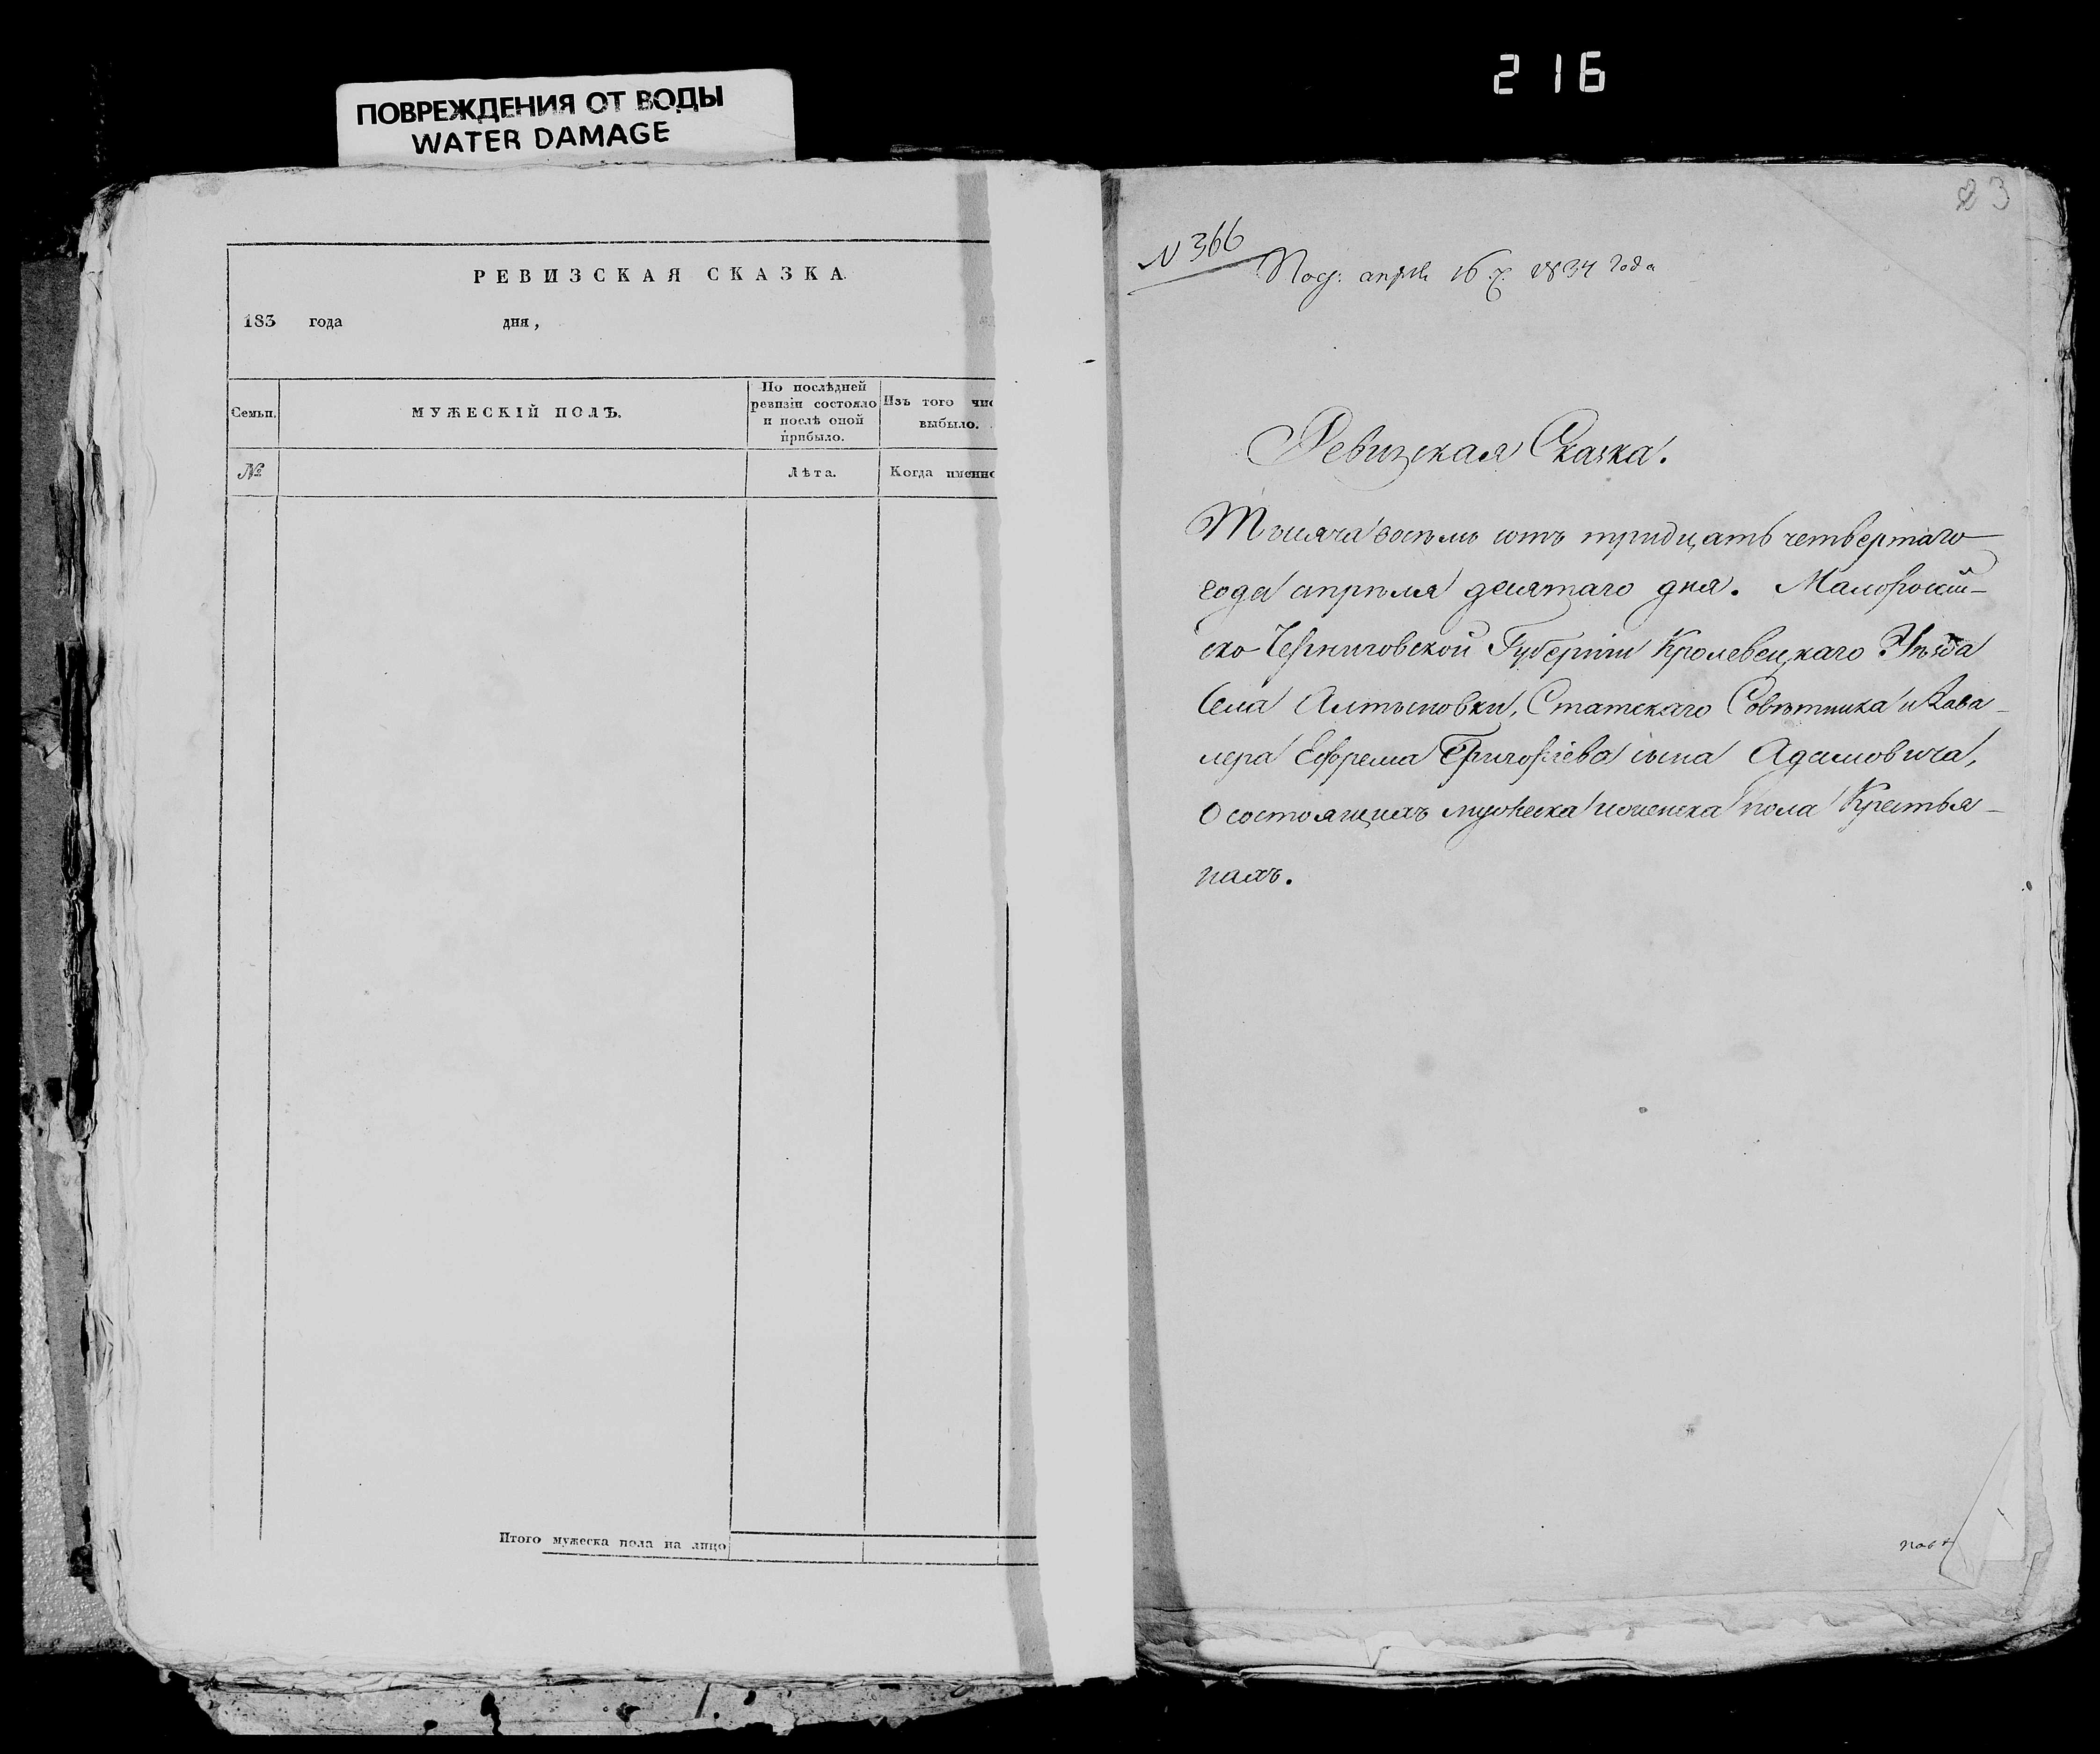 ПОВРЕЖДЕНИЯ ОТ ВОДЫ
WATER DAMAGE
216
РЕВИЗСКАЯ СКАЗКА
183 года дня,
Семьи.
МУЖЕСКІЙ ПОЛЪ.
По послѣдней
ревизіи состояло
и послѣ оной
прибыло.
Изъ того чис
выбыло.
№
Лѣта.
Когда именно
Итого мужеска пола на лицо
23
N 366
Под: апрѣля 16 ч. 1834 года
Ревизская Сказка.
Тысяча восемь сотъ тридцать четвертаго
года апрѣля десятаго дня. Малороссій-
ско Черниговской Губерніи Кролевецкаго Уѣзда
Села Алтыновки, Статскаго Совѣтника и Кава-
лера Ефрема Григорьева сына Адамовича,
О состоящихъ мужеска и женска пола Крестья-
нахъ.